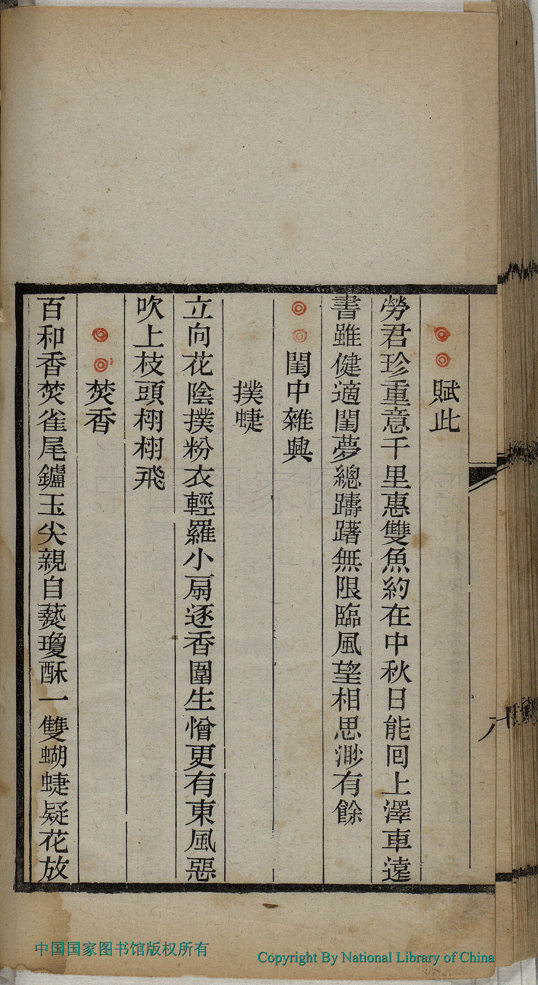 賦此
勞君珍重意千里惠雙魚約在中秋日能囘上澤車遠
書雖健適閨夢總躊躇無限臨風望相思渺有餘
閨中雜興
撲蜨
立向花陰撲粉衣輕羅小扇逐香圍生憎更有東風惡
吹上枝頭栩栩飛
焚香
百和香焚雀尾鑪玉尖親自爇瓊酥一雙蝴蜨疑花放
中国国家图书馆版权所有
Copyright By National Library of China